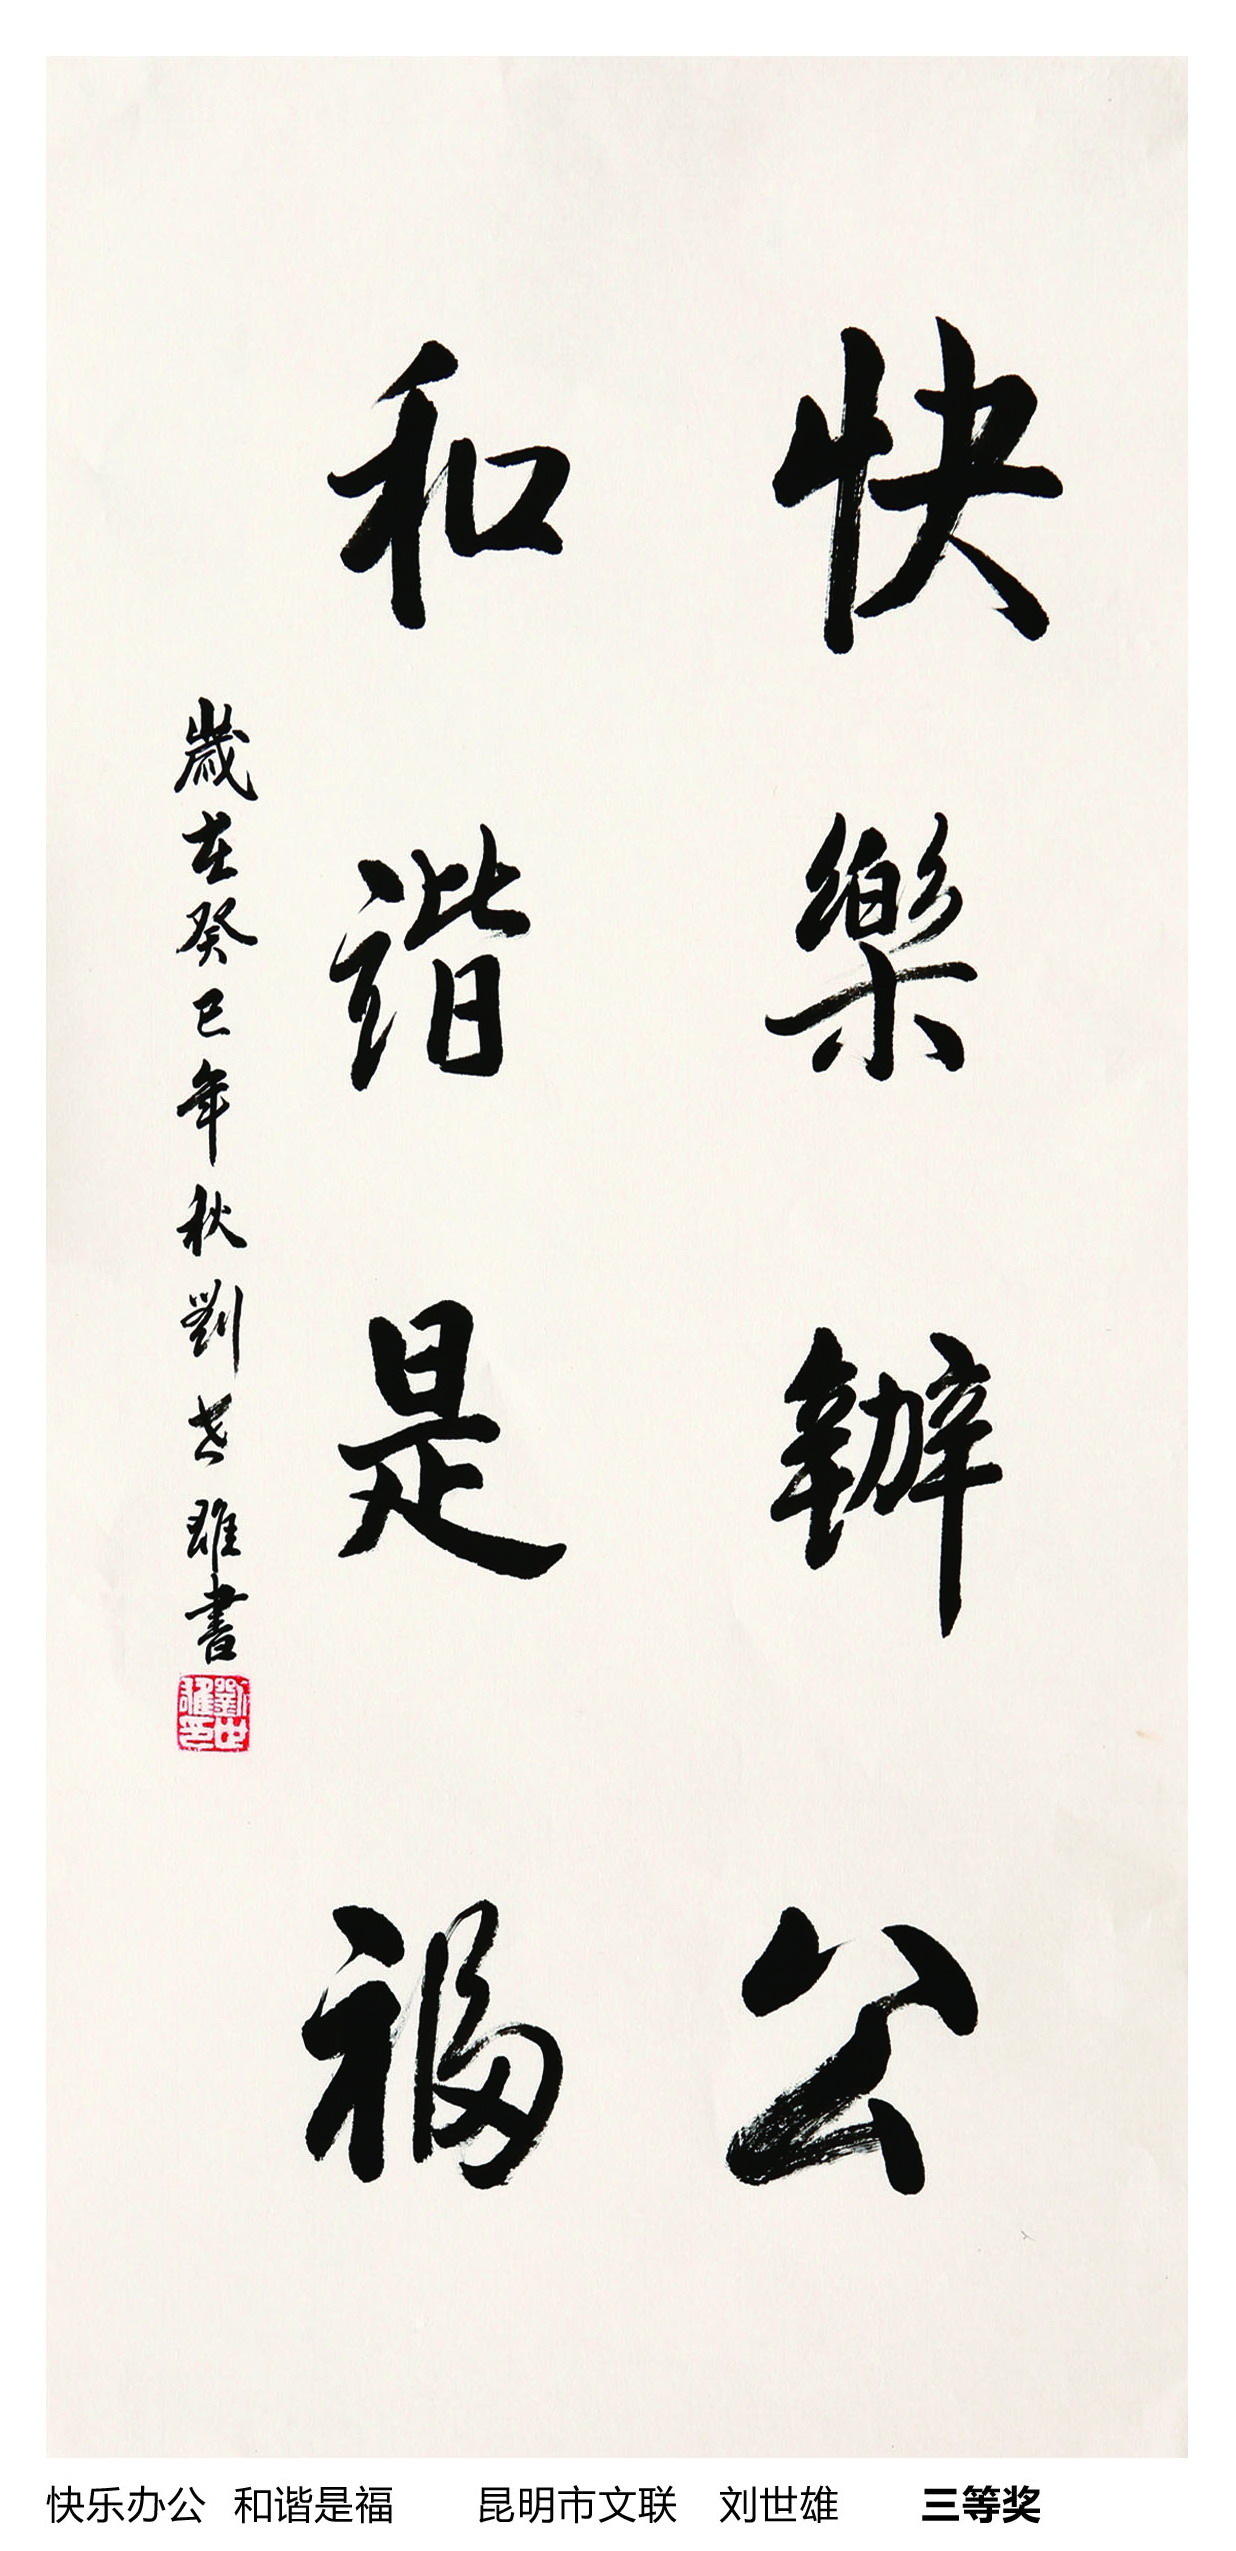 快樂辦公
和諧是福
歲在癸巳年秋劉世雄書
劉世雄印
快乐办公 和谐是福 昆明市文联 刘世雄 三等奖